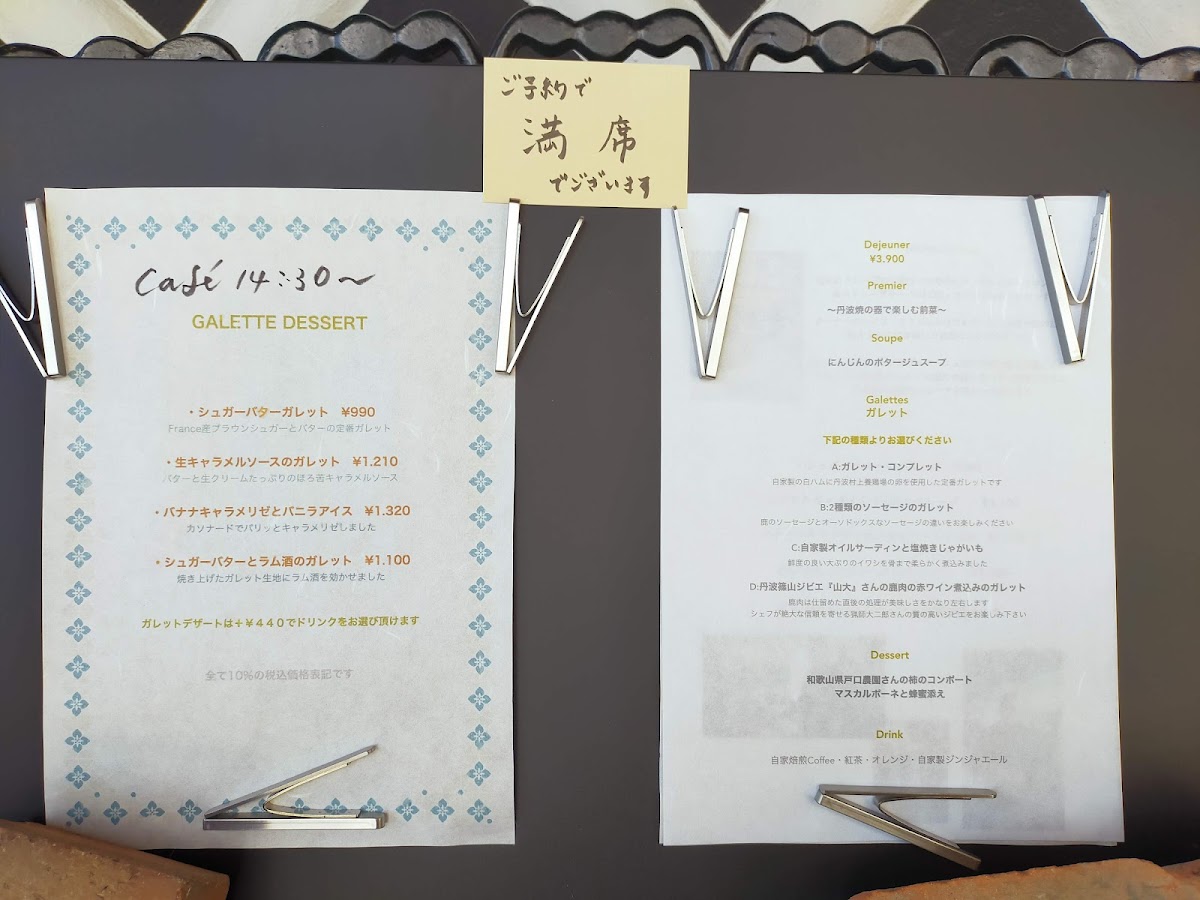 ご予約で
満席
でございます
Café 14:30〜
GALETTE DESSERT
・シュガーバターガレット ¥990
France産ブラウンシュガーとバターの定番ガレット
・生キャラメルソースのガレット ¥1.210
バターと生クリームたっぷりのほろ苦キャラメルソース
・バナナキャラメリゼとバニラアイス ¥1.320
カソナードでパリッとキャラメリゼしました
・シュガーバターとラム酒のガレット ¥1.100
焼き上げたガレット生地にラム酒を効かせました
ガレットデザートは＋￥４４０でドリンクをお選び頂けます
全て10%の税込価格表記です
Dejeuner
¥3.900
Premier
〜丹波焼の器で楽しむ前菜〜
Soupe
にんじんのポタージュスープ
Galettes
ガレット
下記の種類よりお選びください
A:ガレット・コンプレット
自家製の白ハムに丹波村上養鶏場の卵を使用した定番ガレットです
B:2種類のソーセージのガレット
鹿のソーセージとオーソドックスなソーセージの違いをお楽しみください
C:自家製オイルサーディンと塩焼きじゃがいも
鮮度の良い大ぶりのイワシを骨まで柔らかく煮込みました
D:丹波篠山ジビエ『山大』さんの鹿肉の赤ワイン煮込みのガレット
鹿肉は仕留めた直後の処理が美味しさをかなり左右します
シェフが絶大な信頼を寄せる猟師大二郎さんの質の高いジビエをお楽しみ下さい
Dessert
和歌山県戸口農園さんの柿のコンポート
マスカルポーネと蜂蜜添え
Drink
自家焙煎Coffee・紅茶・オレンジ・自家製ジンジャエール